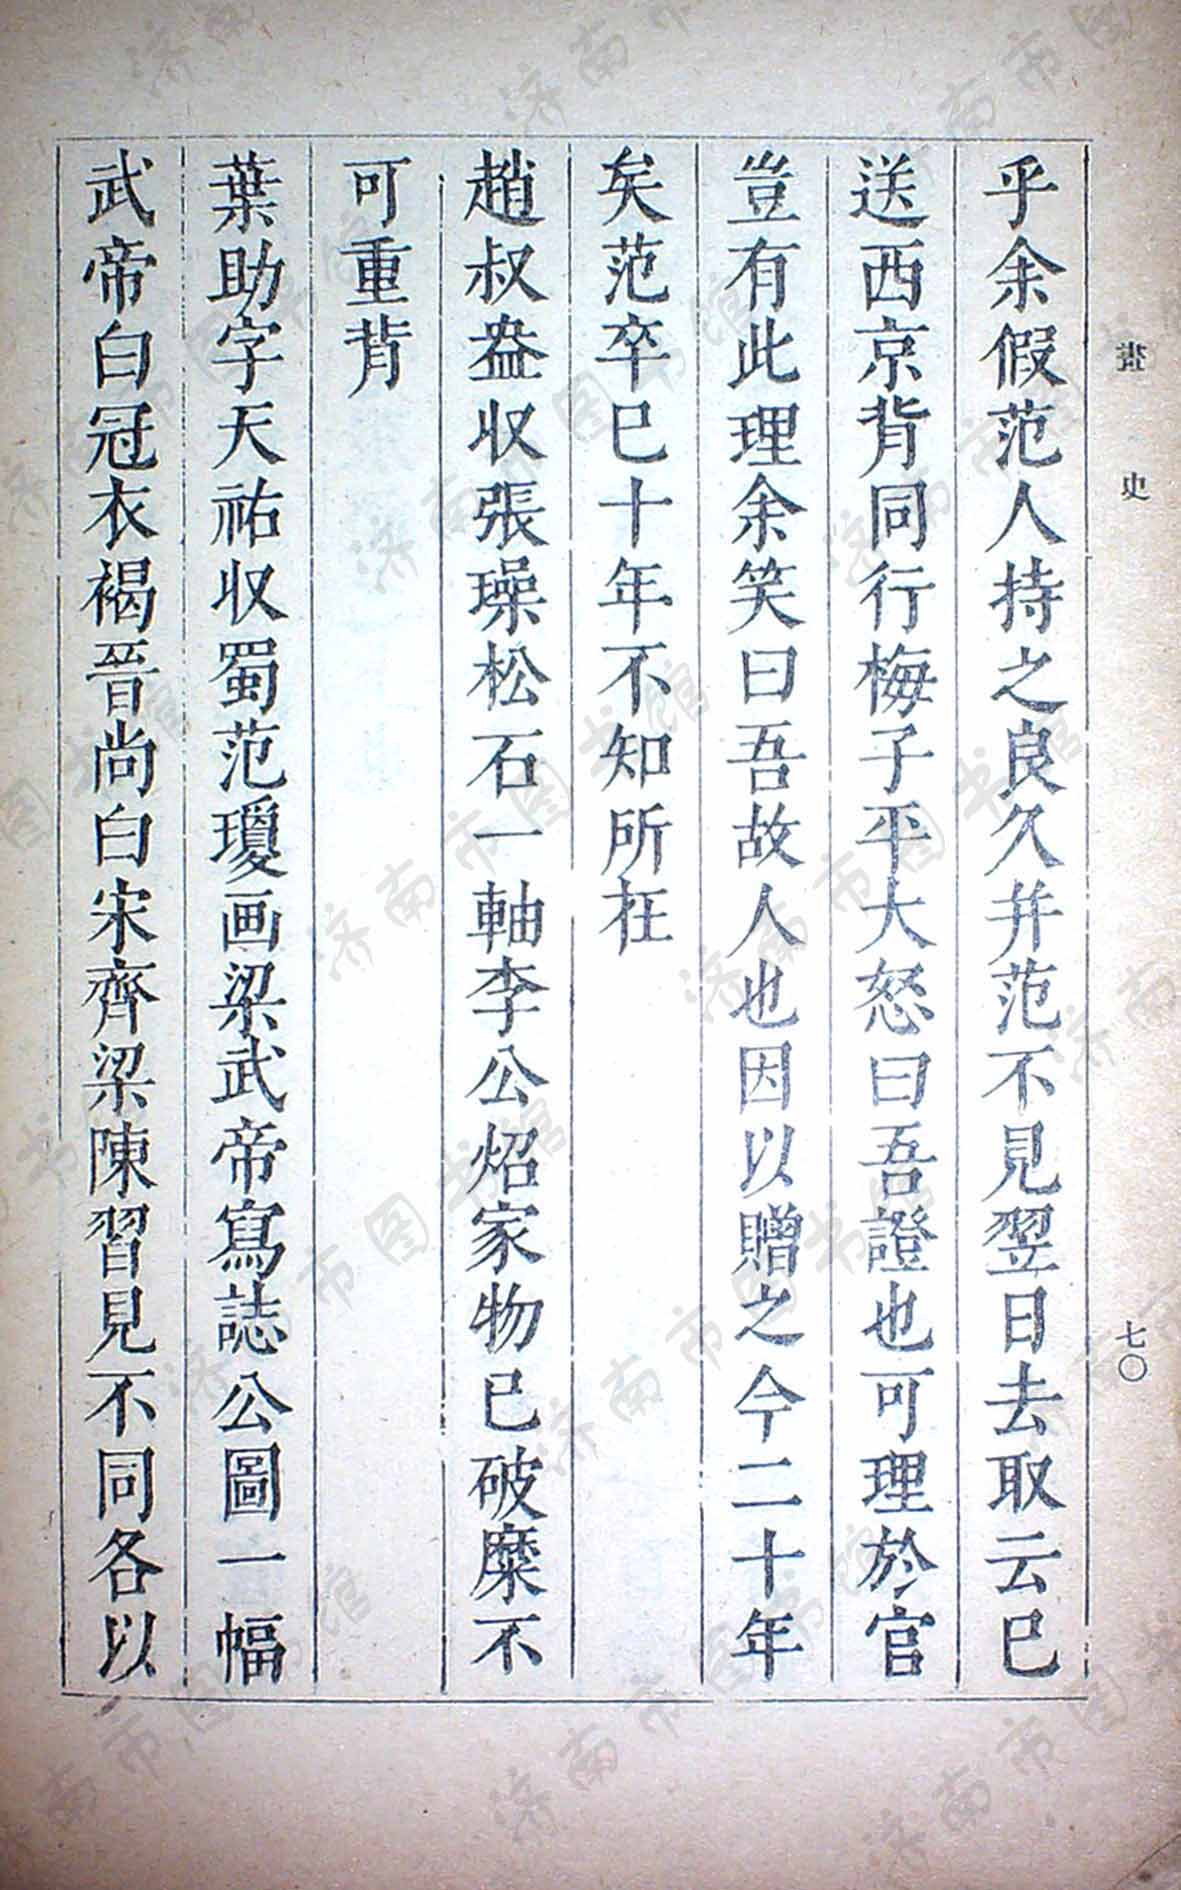 畫史
七〇
乎余假范人持之良久并范不見翌日去取云已
送西京背同行梅子平大怒曰吾證也可理於官
豈有此理余笑曰吾故人也因以贈之今二十年
矣范卒已十年不知所在
趙叔盎收張璪松石一軸李公炤家物已破糜不
可重背
葉助字天祐收蜀范瓊画梁武帝寫誌公圖一幅
武帝白冠衣褐晉尚白宋齊梁陳習見不同各以
济南市图书馆